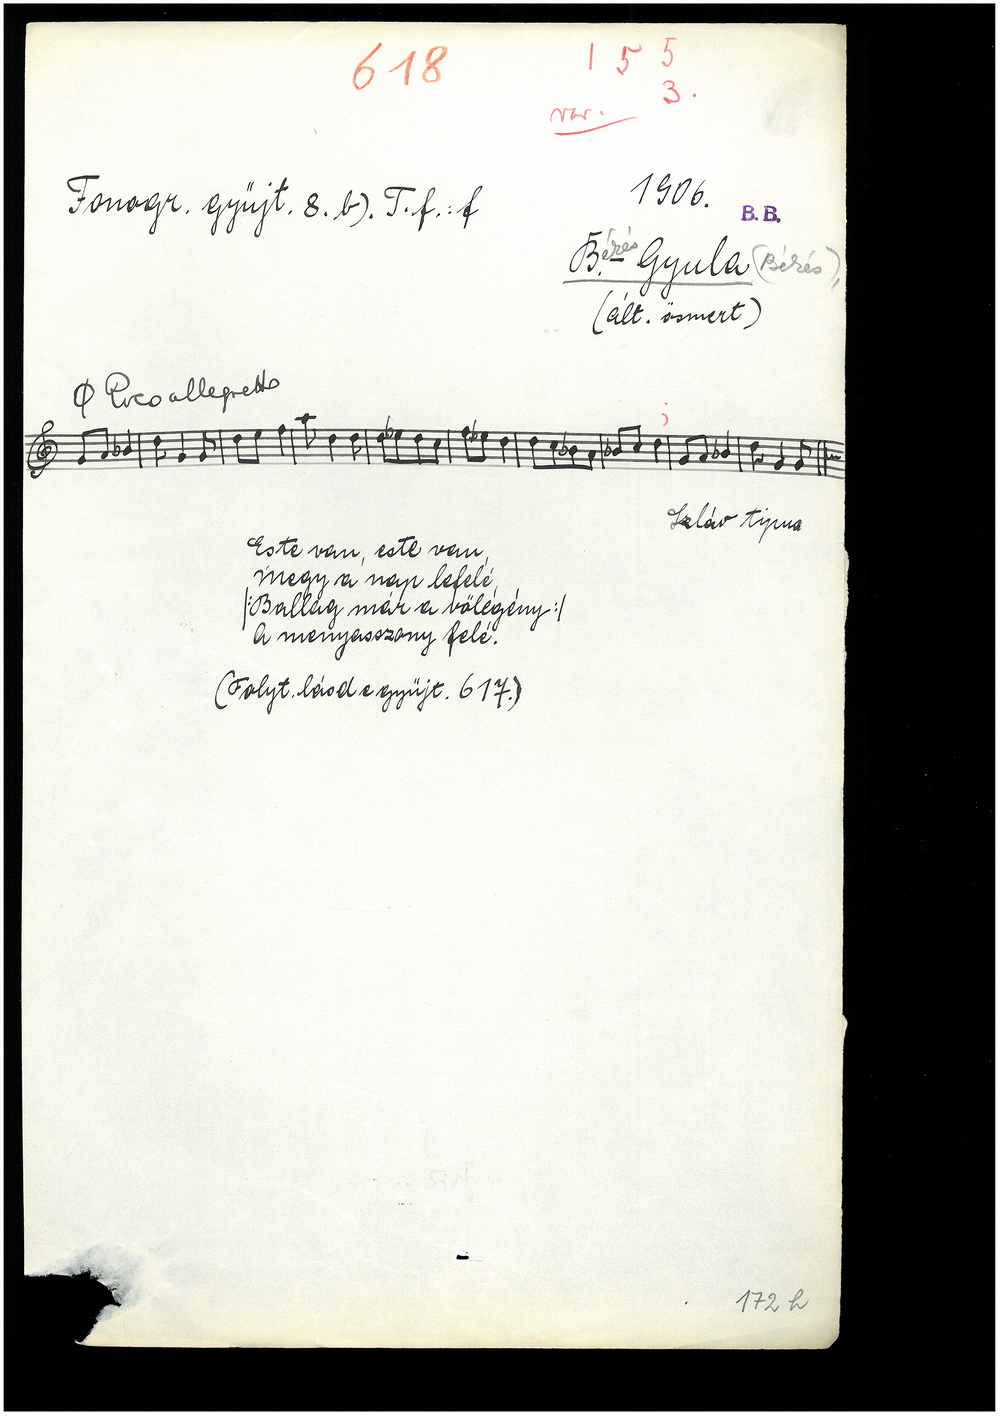 618
1 5 5
3.
var.
Fonogr. gyüjt. 8. b). T. f. : f
1906.
B.B.
B.érés Gyula (Békés),
(ált. ösmert)
Poco allegretto
Szláv tipus
Este van, este van,
Megy a nap lefelé,
|:Ballag már a völegény:|
A menyasszony felé.
(Folyt. lásd e gyüjt. 617.)
172 h